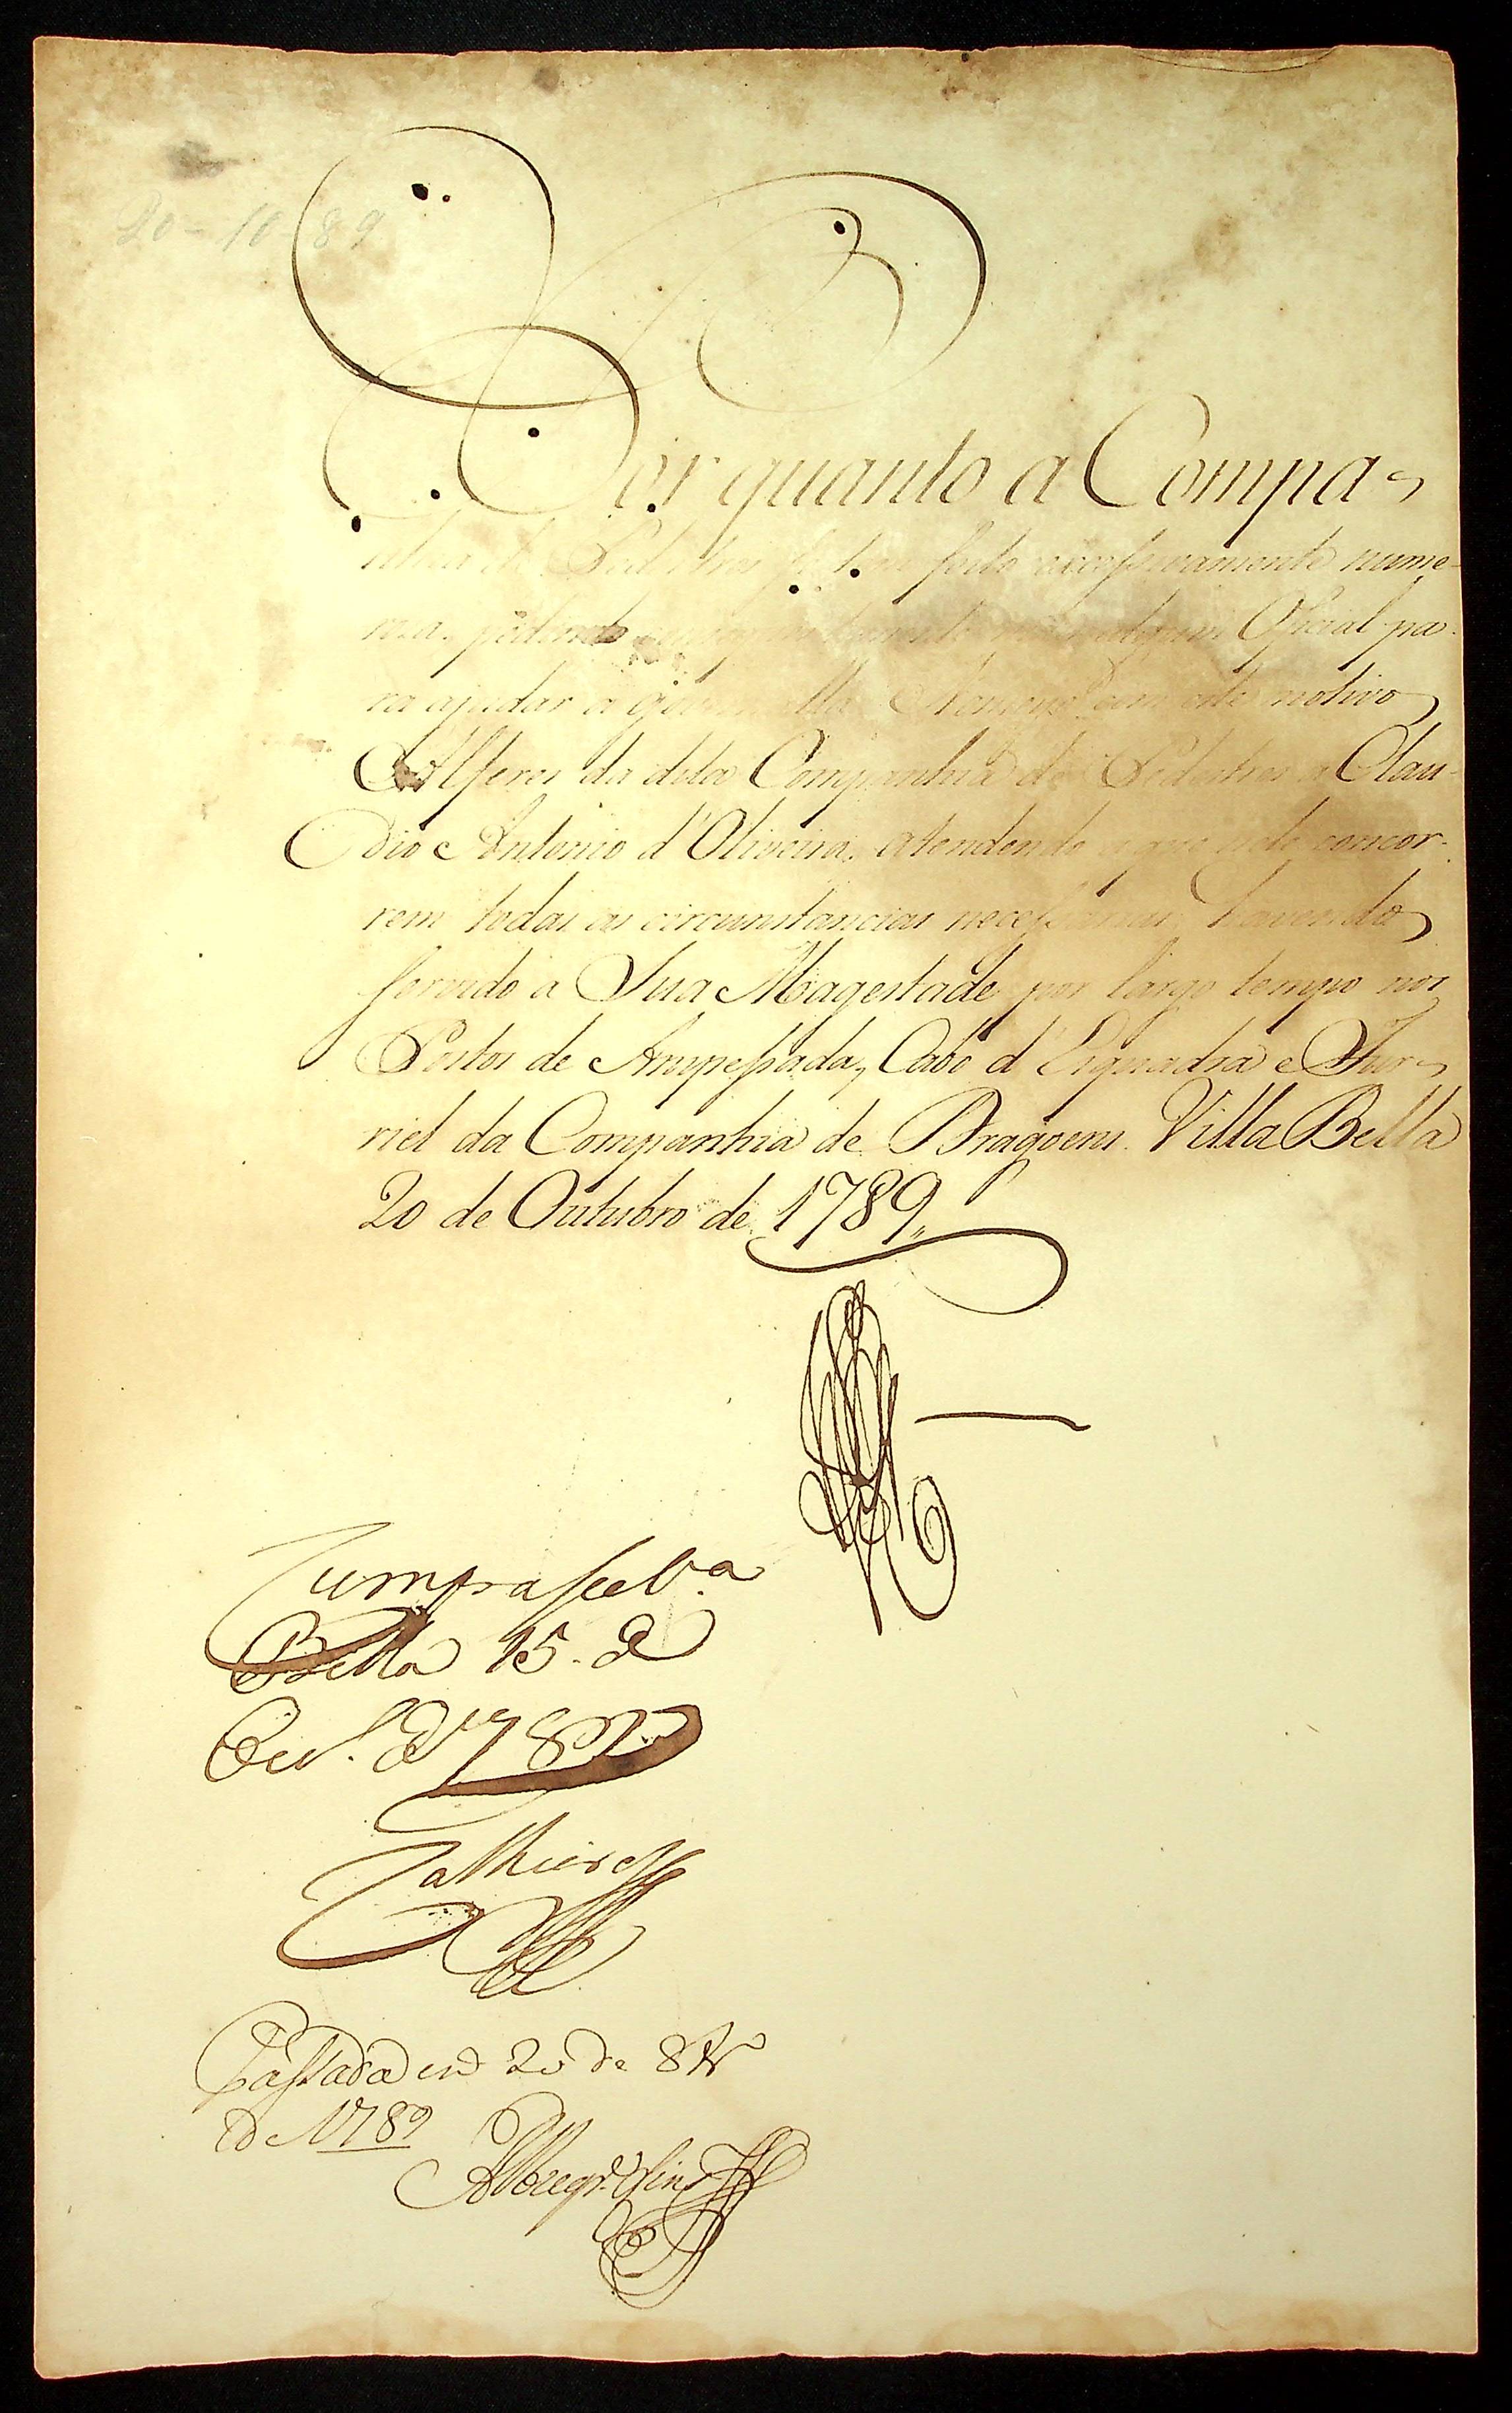 20-10-89
Por quanto a Compa-
nhia de Pedestres se tem feito excessivamente nume-
roza, pedindo algum Oficial pa-
ra ajudar a Nomeyo com este motivo
Alferes da dita Companhia de Pedestres a Clau-
dio Antonio d'Oliveira, atendendo a que nele concor-
rem todas as circunstancias necessarias, havendo
servido a Sua Magestade por largo tempo nos
Postos de Anspessada, Cabo d'Esquadra e Fur-
riel da Companhia de Dragoens. Villa Bella
20 de Outubro de 1789,,
Cumprasse V.a
Bella 25. d
Out. d 789
Passada em 20 de 8br.o
de 1789